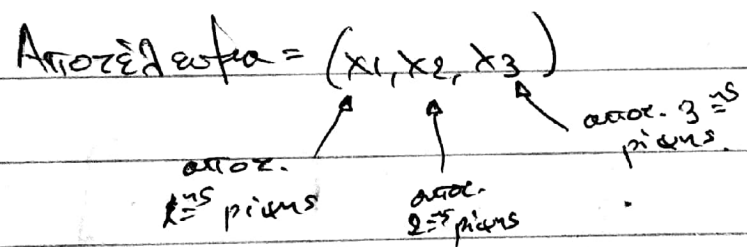 Αποτέλεσμα = (x1, x2, x3)
αποτ. 1ης ρίψης
αποτ. 2ης ρίψης
αποτ. 3ης ρίψης.